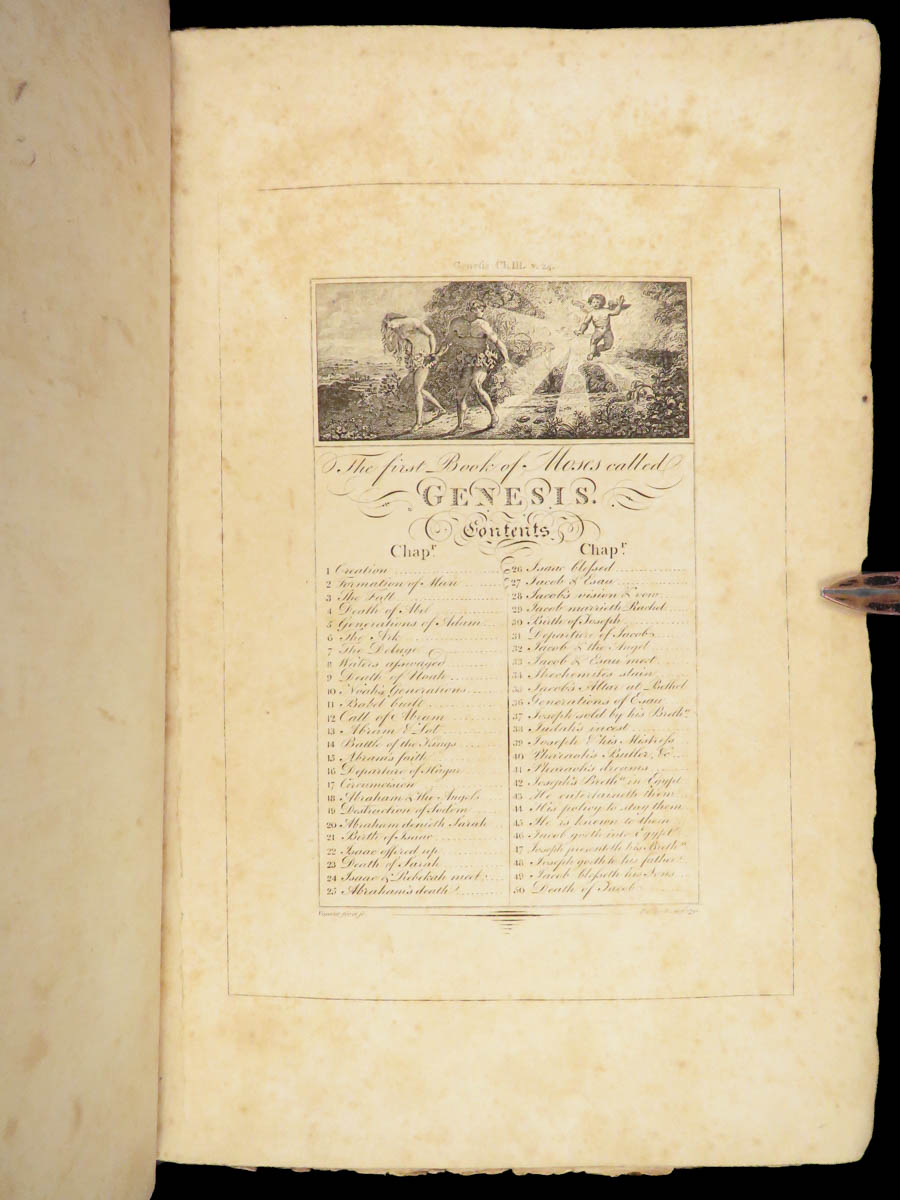 Genesis Ch.III. v. 24.
The first Book of Moses called
GENESIS.
Contents
Chapr
1 Creation
2 Formation of Man
3 The Fall
4 Death of Abel
5 Generations of Adam
6 The Ark
7 The Deluge
8 Waters asswaged
9 Death of Noah
10 Noah's Generations
11 Babel built
12 Call of Abram
13 Abram & Lot
14 Battle of the Kings
15 Abram's faith
16 Departure of Hagar
17 Circumcision
18 Abraham & the Angels
19 Destruction of Sodom
20 Abraham denieth Sarah
21 Birth of Isaac
22 Isaac offered up
23 Death of Sarah
24 Isaac & Rebekah meet
25 Abraham's death
Chapr
26 Isaac blessed
27 Jacob & Esau
28 Jacob's vision & vow
29 Jacob marrieth Rachel
30 Birth of Joseph
31 Departure of Jacob
32 Jacob & the Angel
33 Jacob & Esau meet
34 Shechemites slain
35 Jacob's Altar at Bethel
36 Generations of Esau
37 Joseph sold by his Brethn
38 Judah's incest
39 Joseph & his Mistress
40 Pharaoh's Butler, &c
41 Pharaoh's dreams
42 Joseph's Brethn in Egypt
43 He entertaineth them
44 His policy to stay them
45 He is known to them
46 Jacob goeth into Egypt
47 Joseph presenth his Brethn
48 Joseph goeth to his father
49 Jacob blesseth his Sons
50 Death of Jacob